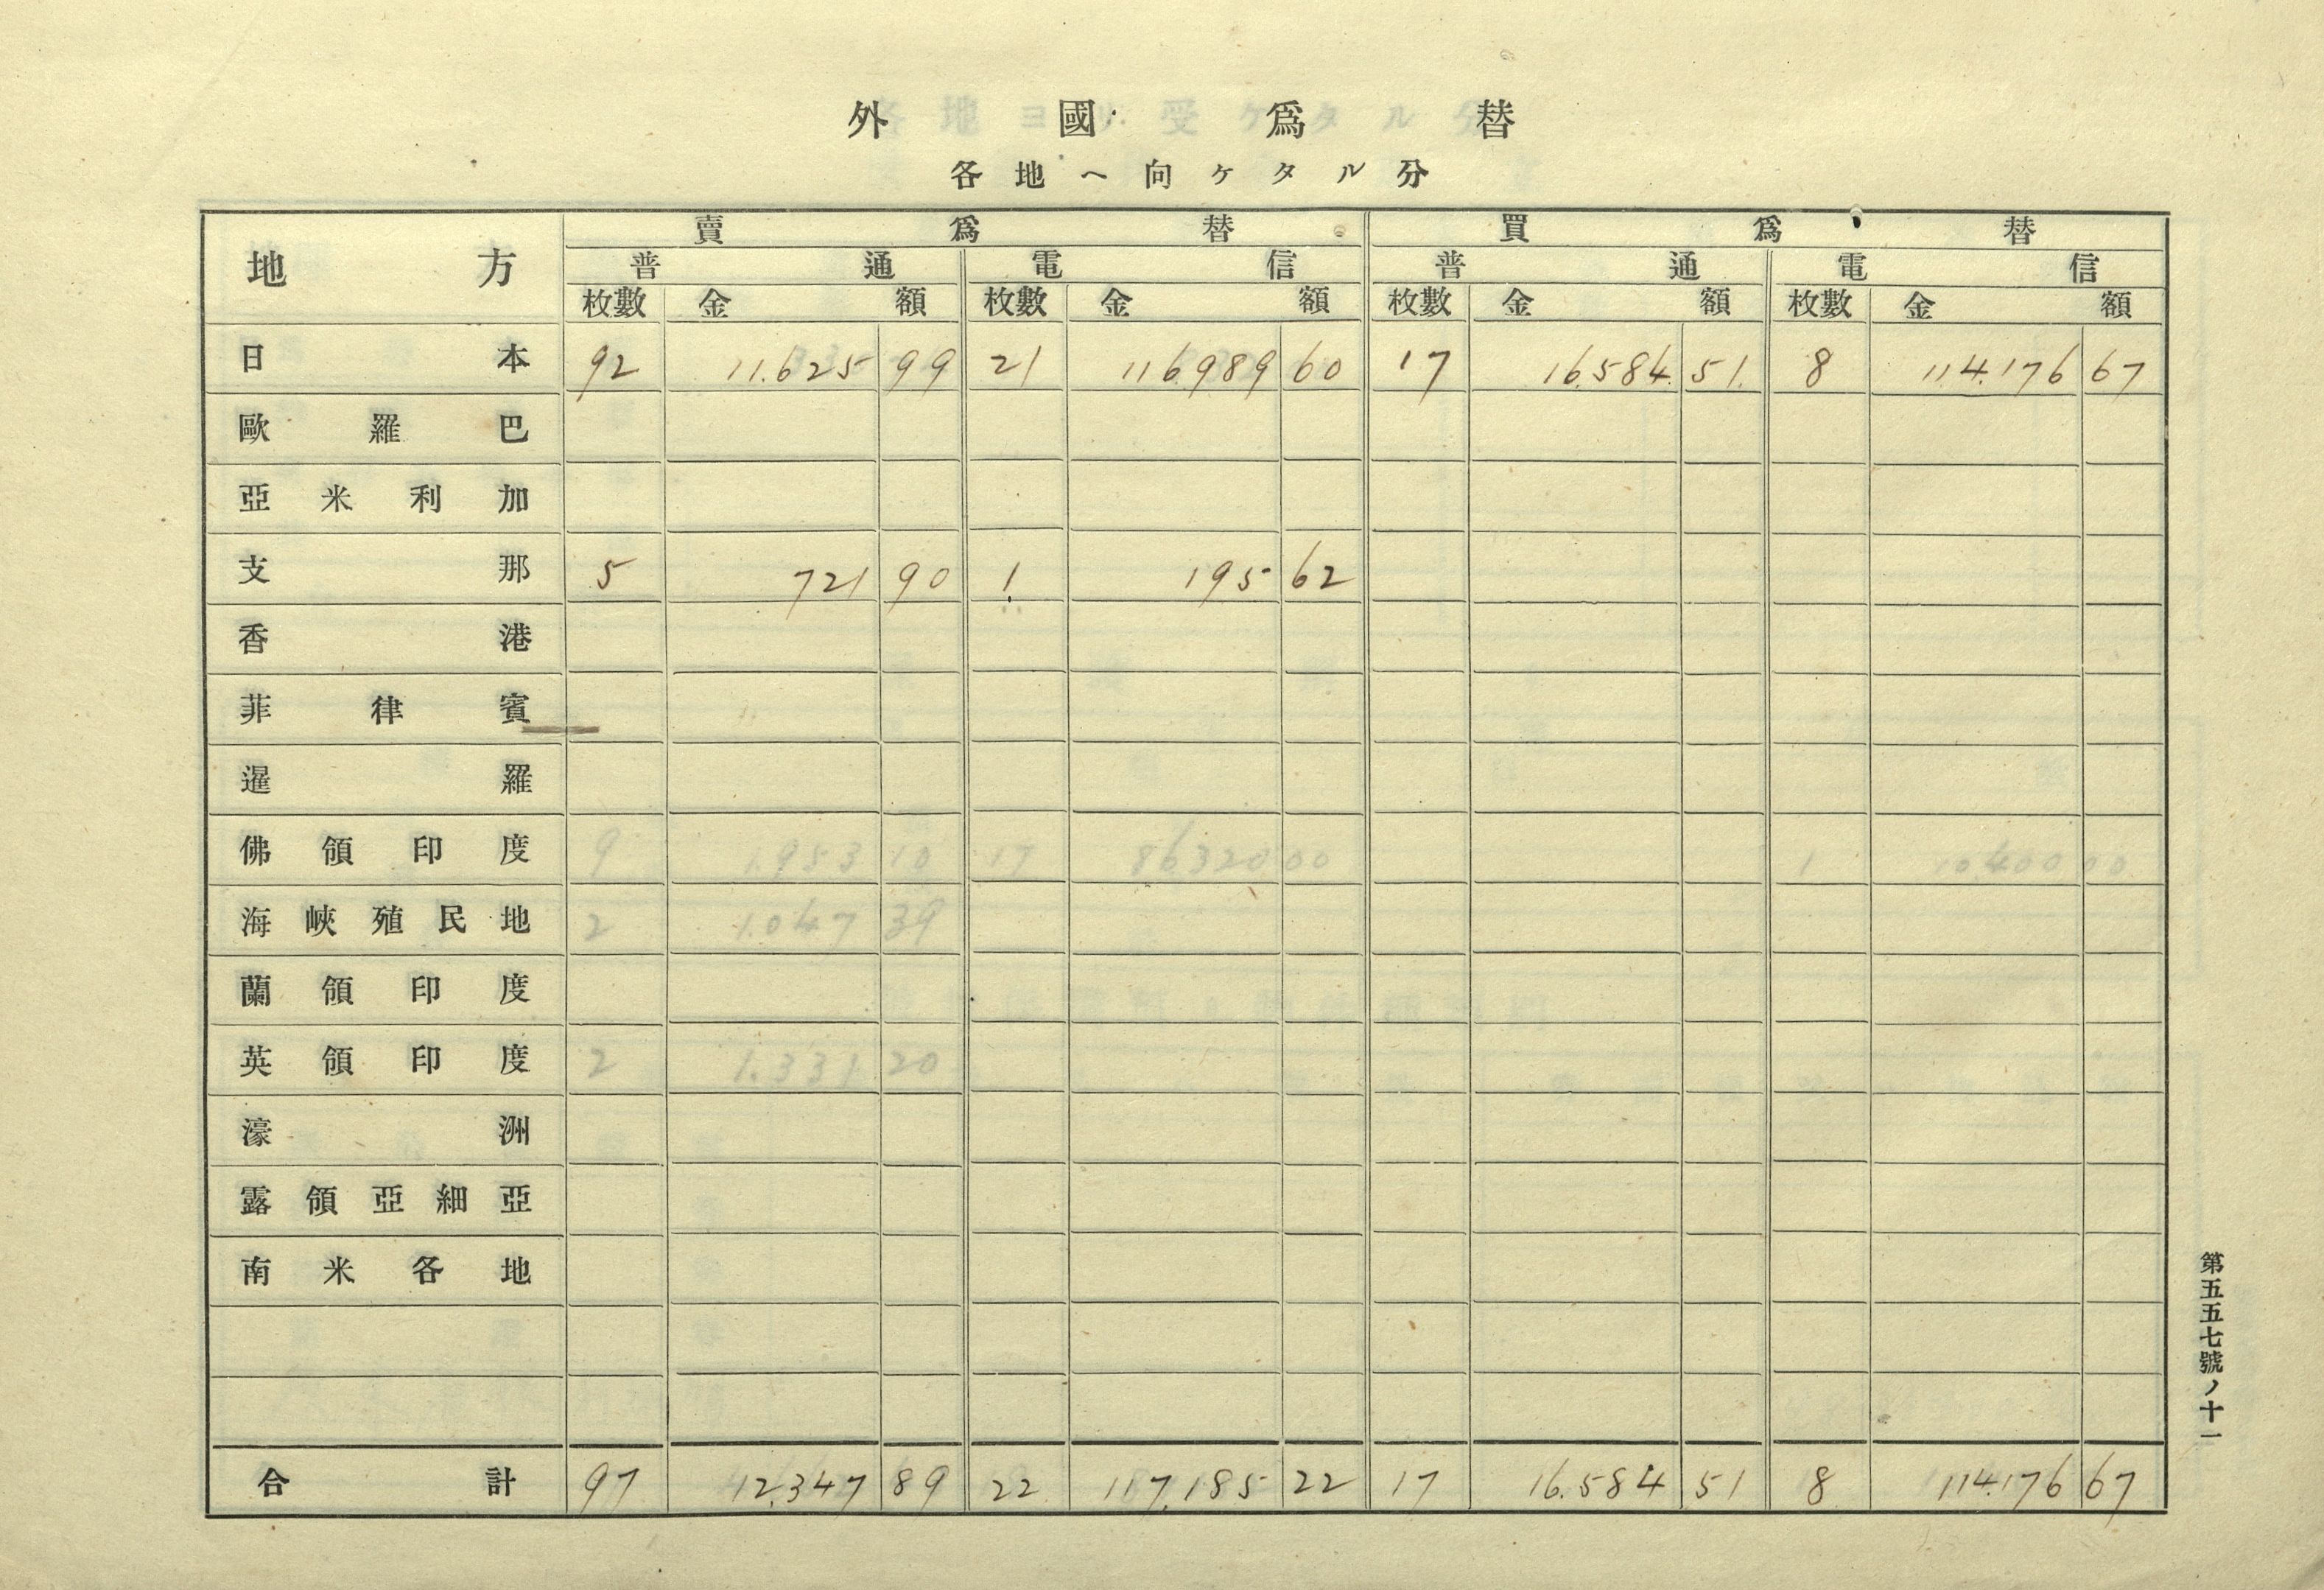 外國爲替
各地ヘ向ケタル分
地方 賣爲替 買爲替
普通 電信 普通 電信
枚數 金額 枚數 金額 枚數 金額 枚數 金額
日本 92 11.625 99 21 116989 60 17 16.584 51. 8 114.176 67
歐羅巴
亞米利加
支那 5 721 90 1 195 62
香港
菲律賓
暹羅
佛領印度 9 1.953 10 17 86320 00 1 10.400 00
海峽殖民地 2 1.047 39
蘭領印度
英領印度 2 1.331 20
濠洲
露領亞細亞
南米各地
合計 97 12.347 89 22 117.185 22 17 16.584 51 8 114.176 67
第五五七號ノ十一